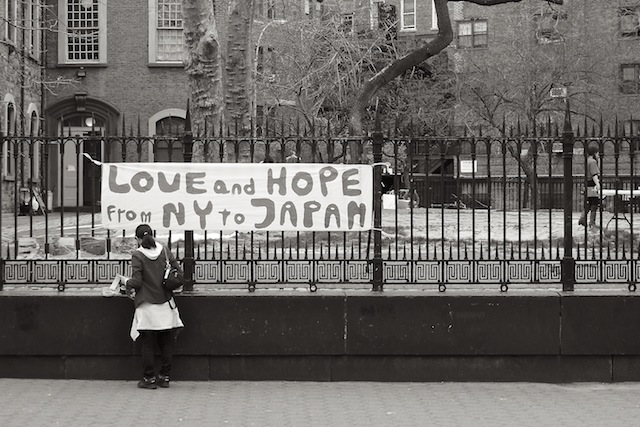 LOVE and HOPE
From NY to JAPAN